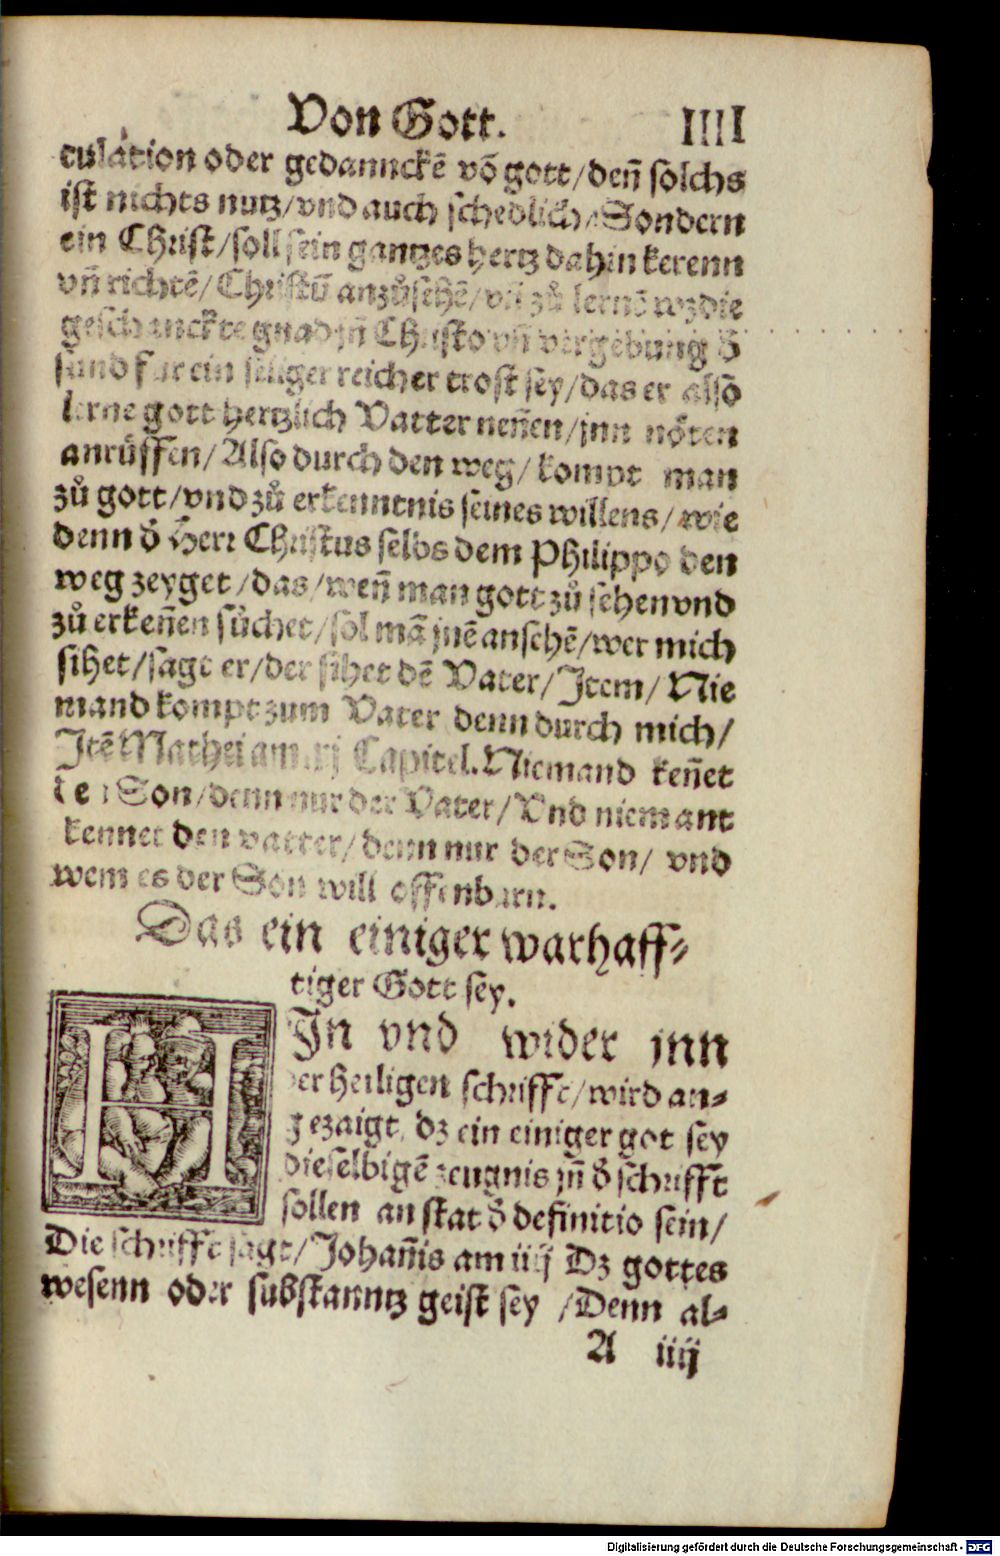 Von Gott. IIII
culation oder gedannckẽ võ gott/deñ solchs
ist nichts nutz/vnd auch schedlich/Sondern
ein Christ/soll sein gantzes hertz dahin kerenn
vñ richtẽ/Christũ anzůsehẽ/vñ zů lernẽ wz die
geschanckte gnad jñ Christo vñ vergebung d̕
sünd für ein seliger reicher trost sey/das er also
lerne gott hertzlich Vatter neñen/jnn nöten
anrüffen/Also durch den weg/kompt man
zů gott/vnd zů erkenntnis seines willens/wie
denn d̕ Herr Christus selbs dem Philippo den
weg zeyget/das/weñ man gott zů sehen vnd
zů erkeñen sůchet/sol mã jnẽ ansehẽ/wer mich
sihet/sagt er/der sihet dẽ Vater/Item/Nie
mand kompt zum Vater denn durch mich/
Itẽ Mathei am xj Capitel. Niemand keñet
den Son/denn nur der Vater/Vnd niemant
kennet den vatter/denn nur der Son/ vnd
wem es der Son will offenbarn.
Das ein einiger warhaff⸗
tiger Gott sey.
HIn vnd wider jnn
der heiligen schrifft/wird an⸗
gezaigt, dz ein einiger got sey
dieselbigẽ zeugnis jñ d̕ schrifft
sollen an stat d̕ definitio sein/
Die schrifft sagt/Johañis am iiij Dz gottes
wesenn oder substanntz geist sey /Denn al⸗
A iiij
Digitalisierung gefördert durch die Deutsche Forschungsgemeinschaft - DFG